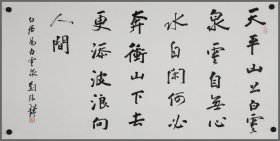 天平山上白雲
泉雲自無心
水自閑何必
奔衝山下去
更添波浪向
人間
白居易白雲泉 劉